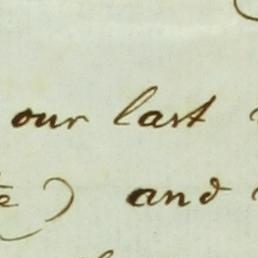 our last
) and